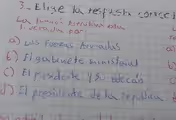 3- Elige la respuesta correc
La función
a) Las Fuerzas Armadas
b) El gabinete ministerial
c) El presidente y sus
d) El presidente de la república
a)
b)
c)
d)